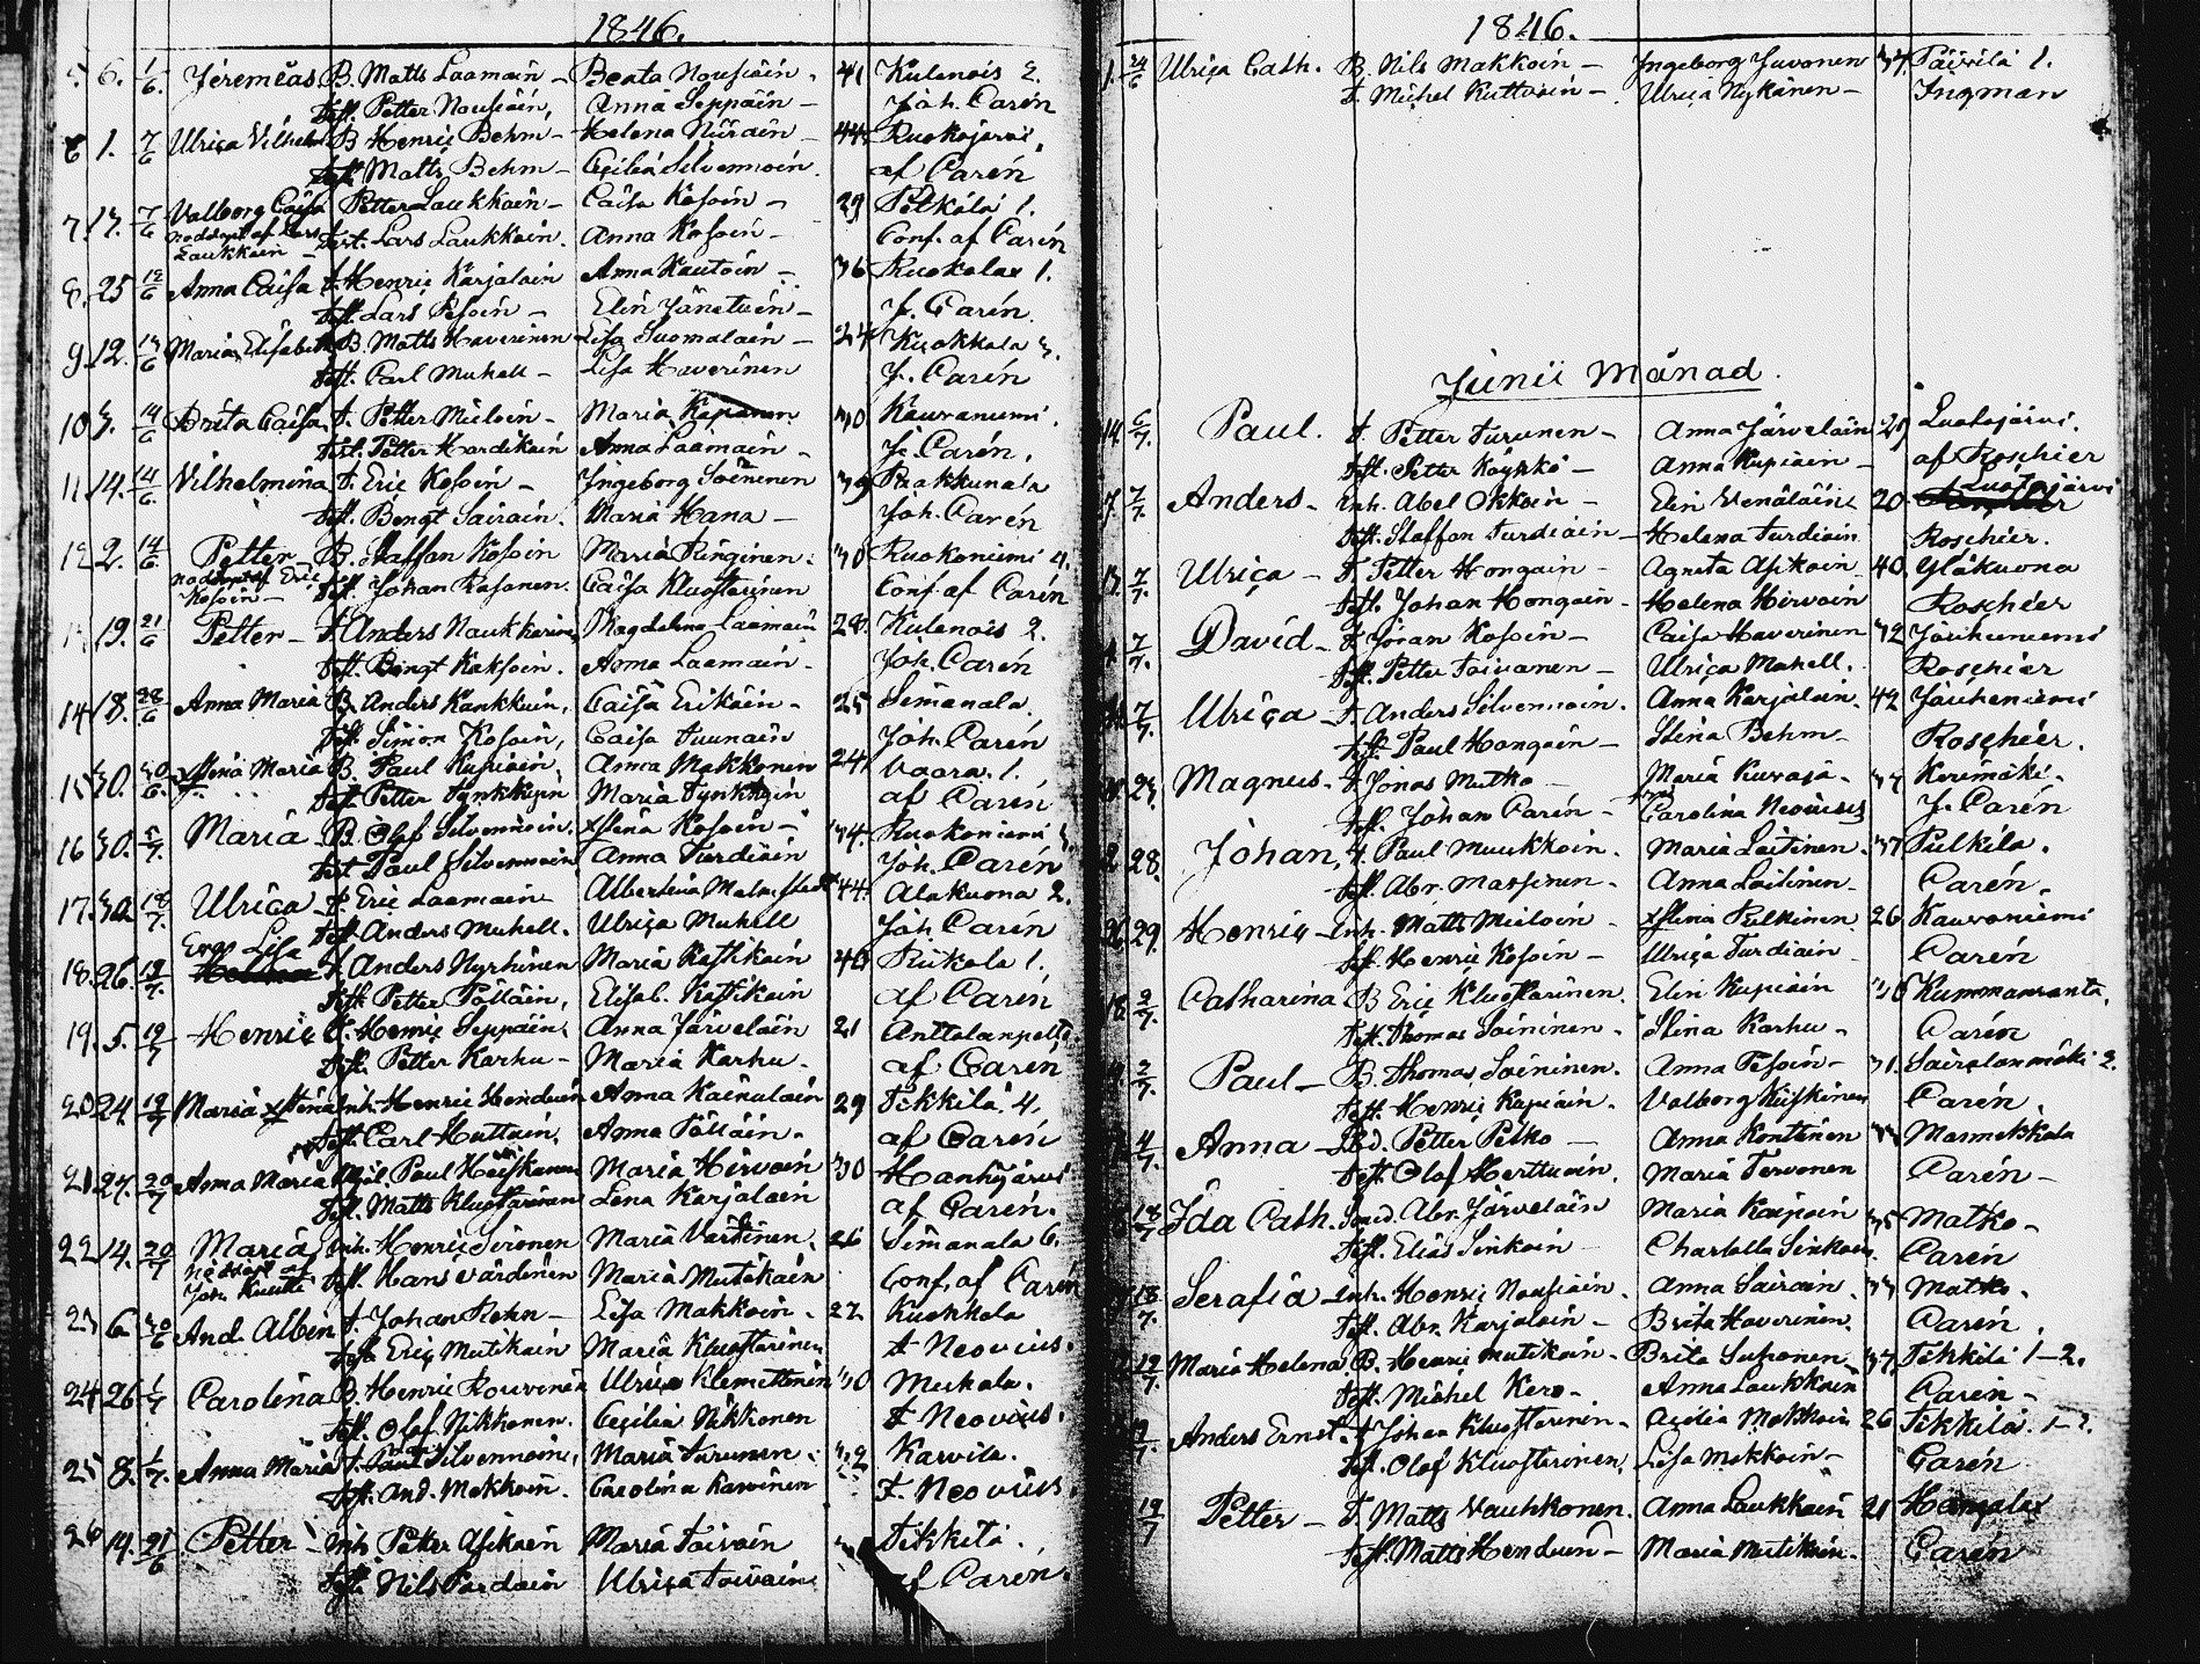 1846.
5. 6. 1/6. Jeremias B. Matts Laamain – Beata Nousiain. 41 Kulenois 2.
Test. Petter Nousiain, Anna Seppäin – Joh. Carén
6 1. 7/6 Ulrica Vilhel B Henric Behm – Helena Niirain – 44 Ruokojärvi.
Test. Matts Behm – Cecilia Silvennoin. af Carén
7. 17. 7/6 Valborg Caisa Petter Laukkain – Caisa Kosoin – 29 Pelkälä 1.
nöddöpt af Lars Laukkain – Test. Lars Laukkain. Anna Kosoin – Conf. af Carén
8. 25 12/6 Anna Caisa T. Henric Karjalain Anna Kautoin – 36 Ruokolax 1.
Test. Lars Pesoin – Elin Jänetuin – J. Carén.
9. 12. 14/6 Maria Elisabeth B. Matts Haverinen Lisa Suomalain – 24 Kuokkala 3.
Test. Carl Muhell – Lisa Haverinen J. Carén
10 3. 14/6 Brita Caisa T. Petter Mieloin – Maria Kapanen 30 Kauvaniemi.
Test. Petter Hardikain Anna Laamain – J. Carén.
11. 14. 14/6. Vilhelmina T. Eric Kosoin – Ingeborg Soininen 39 Pakkunala
Test. Bengt Sairain. Maria Hana – Joh. Carén
12 2. 14/6. Petter B. Staffan Kosoin Maria Ringinen. 30 Ruokoniemi 4.
nöddöpt af Eric Kosoin – Test. Johan Kosonen. Caisa Kluostarinen Conf. af Carén
19. 21/6 Petter – T. Anders Naukkarinen Magdalena Laamain 28. Kulenois 2.
Test. Bengt Kaksoin. Anna Laamain – Joh. Carén
14 18. 28/6 Anna Maria B. Anders Kankkuin, Caisa Erikäin – 25 Simanala.
Test. Simon Kosoin, Caisa Tuunain Joh. Carén
15 30. 30/6. Xstina Maria B. Paul Kupiain, Anna Makkonen 24. Vaara. 1.
Test. Petter Tynkkyin Maria Tynkkyin af Carén
16 30. 5/7. Maria B. Olof Silvennoin. Xstina Kosoin – 34. Ruokoniemi
Test Paul Silvennoin. Anna Turdiain Joh. Carén
17. 30. 18/7. Ulrica T. Eric Laamain Albertina Malmstedt 44. Alakuona 2.
Test. Anders Muhell. Ulrica Muhell Joh. Carén
18. 26. 19/7. Eva Lisa T. Anders Nyrhinen Maria Kostikain 40 Riikola 1.
Test. Petter Pölläin, Elisab. Kostikain af Carén
19. 5. 19/7 Henric T. Henric Seppäin. Anna Järveläin 21 Anttolanpelto
Test. Petter Karhu – Maria Karhu. af Carén
20 24 19/7 Maria Xstina Inh. Henric Henduin Anna Käinulain 29 Tikkilä 4.
Test. Carl Huttuin. Anna Pölläin. af Carén
21 27. 20/7 Anna Maria Mjöl. Paul Heiskanen Maria Hirvoin 30 Hankijärvi
Test. Matts Kluostarinen Lena Karjalain af Carén.
22 14. 20/7 Maria, Inh. Henric Sironen Maria Värtinen. 26 Simanala 6.
Test. Hans Värdinen Maria Mutikain Conf. af Carén
23 6 30/6 And. Alben T. Johan Rehn – Lisa Makkoin. 22 Kuokkala
Test. Eric Mutikain Maria Kluostarinen A. Neovius.
24 26 1/7 Carolina B. Henric Rouvinen Ulrica Klemettinen 30 Mickala.
Test. Olof Nikkonen. Cecilia Nikkonen F. Neovius.
25 8. 1/7. Anna Maria T. Silvennoin, Maria Turunen. 32 Karvila.
Test. And. Makkoin. Carolina Karvinen F. Neovius.
26 14. 21/6 Petter – Inh. Petter Asikain Maria Toivain Tikkilä.
Test. Nils Pardain Ulrica Toivain af Carén.
1846.
1. 24/6 Ulrica Cath. B. Nils Makkoin – Ingeborg Juvonen 37. Päivilä 1.
T. Michel Kuttvoin – Ulrica Nykänen – Ingman
Junii Månad.
14. 6/7. Paul. T. Petter Turunen – Anna Järveläin 29 Luotojärvi.
Test. Petter Käyhkö – Anna Kupiain – af Roschier
7. 7/7. Anders – Inh. Abel Okkoin – Elin Venäläin 20. Luotojärvi
Test. Staffan Turdiain – Helena Turdiain Roschier.
7/7. Ulrica – T. Petter Hongain – Agneta Asikain 40. Yläkuona
Test. Johan Hongain – Helena Hirvoin Roschier
7/7. David – T. Jöran Kosoin – Caisa Haverinen 32 Jouheniemi
Test. Petter Toivanen – Ulrica Muhell. Roschier
7/7. Ulrica – T. Anders Silvennoin. Anna Karjalain. 42 Jouheniemi
Test. Paul Hongain – Stina Behm – Roschier.
23. Magnus – T. Jonas Mutko – Maria Kuvaja. 37 Kerimäki.
Test. Johan Carén – Carolina Neovius J. Carén
28. Johan, T. Paul Muukkoin. Maria Laitinen. 37 Pulkila.
Test. Abr. Massinen. Anna Laitinen – Carén.
29. Henric – Inh. Matts Mieloin – Xstina Pulkinen 26 Kauvaniemi
Test. Henric Kosoin – Ulrica Turdiain Carén
2/7. Catharina B Eric Kluostarinen. Elin Kupiain 36 Kummanranta.
Test. Thomas Soininen – Stina Karhu – Carén
2/7. Paul – B. Thomas Soininen. Anna Pesoin – 31. Sairalanmäki 2.
Test. Henric Kupiain. Valborg Kiiskinen Carén.
4/7. Anna – Petter Pelko – Anna Konttinen 33 Mannikkala
Test. Olof Herttuain. Maria Tervonen Carén –
18/7 Ida Cath. Smed. Abr. Järveläin Maria Kaipoin 35 Matko –
Test. Elias Sinkoin Charlotta Sinkoin. Carén
18/7. Serafia – Inh. Henric Nousiain. Anna Sairain. 33 Matko.
Test. Abr. Karjalain – Brita Haverinen. Carén.
19/7. Maria Helena B. Henric Mutikain – Brita Suhonen 37. Tikkilä 1–2.
Test. Michel Kero – Anna Laukkain Carén –
19/7. Anders Ernst. T Johan Kluostarinen – Cecilia Makkoin 26 Tikkilä. 1–2.
Test. Olof Kluostarinen, Lisa Makkoin – Carén
19/7 Petter – T. Matts Vauhkonen. Anna Laukkain 21 Haapalax
Test. Matts Henduin – Maria Mutikain. Carén